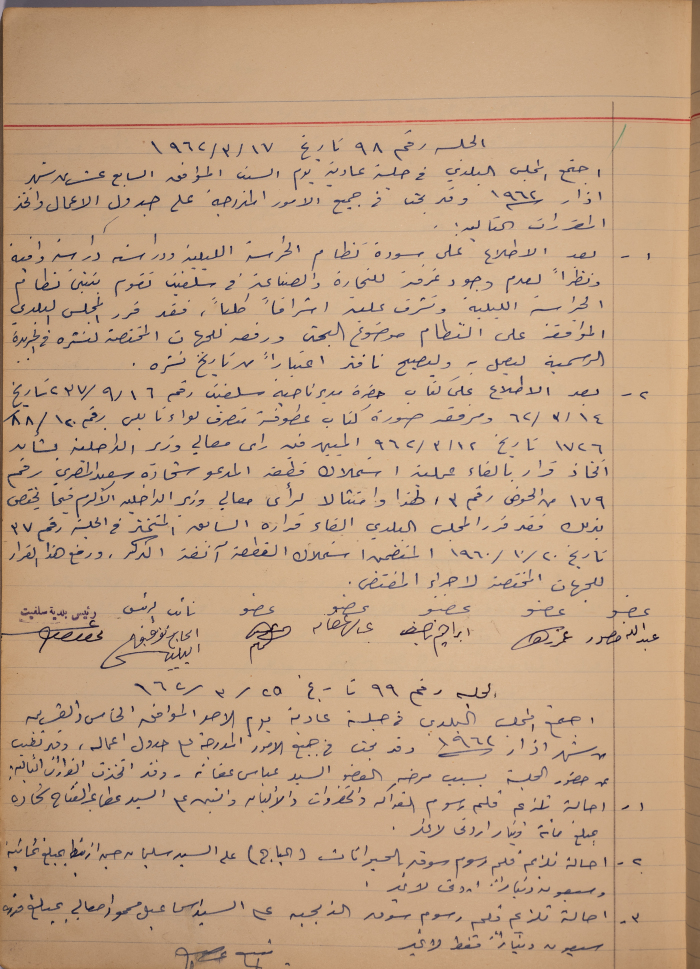 الجلسه رقم ٩٨ تاريخ ١٩٦٢/٣/١٧
اجتمع المجلس البلدي في جلسة عادية يوم السبت الموافق السابع عشر من شهر
اذار ١٩٦٢ وقد بحث في جميع الامور المدرجة على جدول الاعمال واتخذ
المقررات التاليه:
١- بعد الاطلاع على مسودة نظام الحراسة الليلية ودراسته دراسة وافية
ونظراً لعدم وجود غرفة للتجارة والصناعة في سلفيت تقوم بتبني نظام
الحراسة الليلية وتشرف عليه اشرافاً كلياً، فقد قرر المجلس البلدي
الموافقة على النظام موضوع البحث ورفعه للجهات المختصة لنشره في الجريدة
الرسمية ليعمل به وليصبح نافذ اعتباراً من تاريخ نشره.
٢- بعد الاطلاع على كتاب حضرة مدير ناحية سلفيت رقم ٢٣٧/٩/١٦ تاريخ
٦٢/٣/١٤ ومرفقه صورة كتاب عطوفة متصرف لواء نابلس رقم ٨٨/١٢٠/
١٧٢٦ تاريخ ٩٦٢/٣/١٢ المبين فيه رأى معالي وزير الداخلية بشأن
اتخاذ قرار بالغاء عملية استملاك قطعة المدعو شحادة سعيد المصري رقم
١٧٩ من الحوض رقم ٣، لهذا وامتثالا لرأى معالي وزير الداخلية الأكرم فيما يختص
بذلك فقد قرر المجلس البلدي الغاء قراره السابق المتخذ في الجلسة رقم ٣٧
تاريخ ١٩٦٠/١٠/٢٠ المتضمن استملاك القطعة آنفة الذكر، ورفع هذا القرار
للجهات المختصة لاجراء المقتضى.
عضو عضو عضو عضو عضو نائب الرئيس رئيس بلدية سلفيت
عبدالله منصور ابراهيم الحاج توفيق
الجلسه رقم ٩٩ تاريخ ٩٦٢/٣/٢٥
اجتمع المجلس البلدي في جلسة عادية يوم الاحد الموافق الخامس والعشرين
من شهر اذار ١٩٦٢ وقد بحث في جميع الامور المدرجة على جدول اعماله، وقد تغيب
عن حضور الجلسة بسبب مرضه العضو السيد عباس عفانه - وقد اتخذت القرارات التالية:
١- احالة تلزيم قلم رسوم الفواكه والخضروات والألبان والتبن على السيد عطا عبدالفتاح شحاده
بمبلغ مائة دينار اردني لا غير.
٢- احالة تلزيم قلم رسوم سوق الحيوانات (الباج) على السيد سليمان حسن بمبلغ ثمانية
وسبعون ديناراً اردني لا غير.
٣- احالة تلزيم قلم رسوم سوق الذبحيه على السيد اسماعيل محمود بمبلغ
سبعون ديناراً فقط لاغير